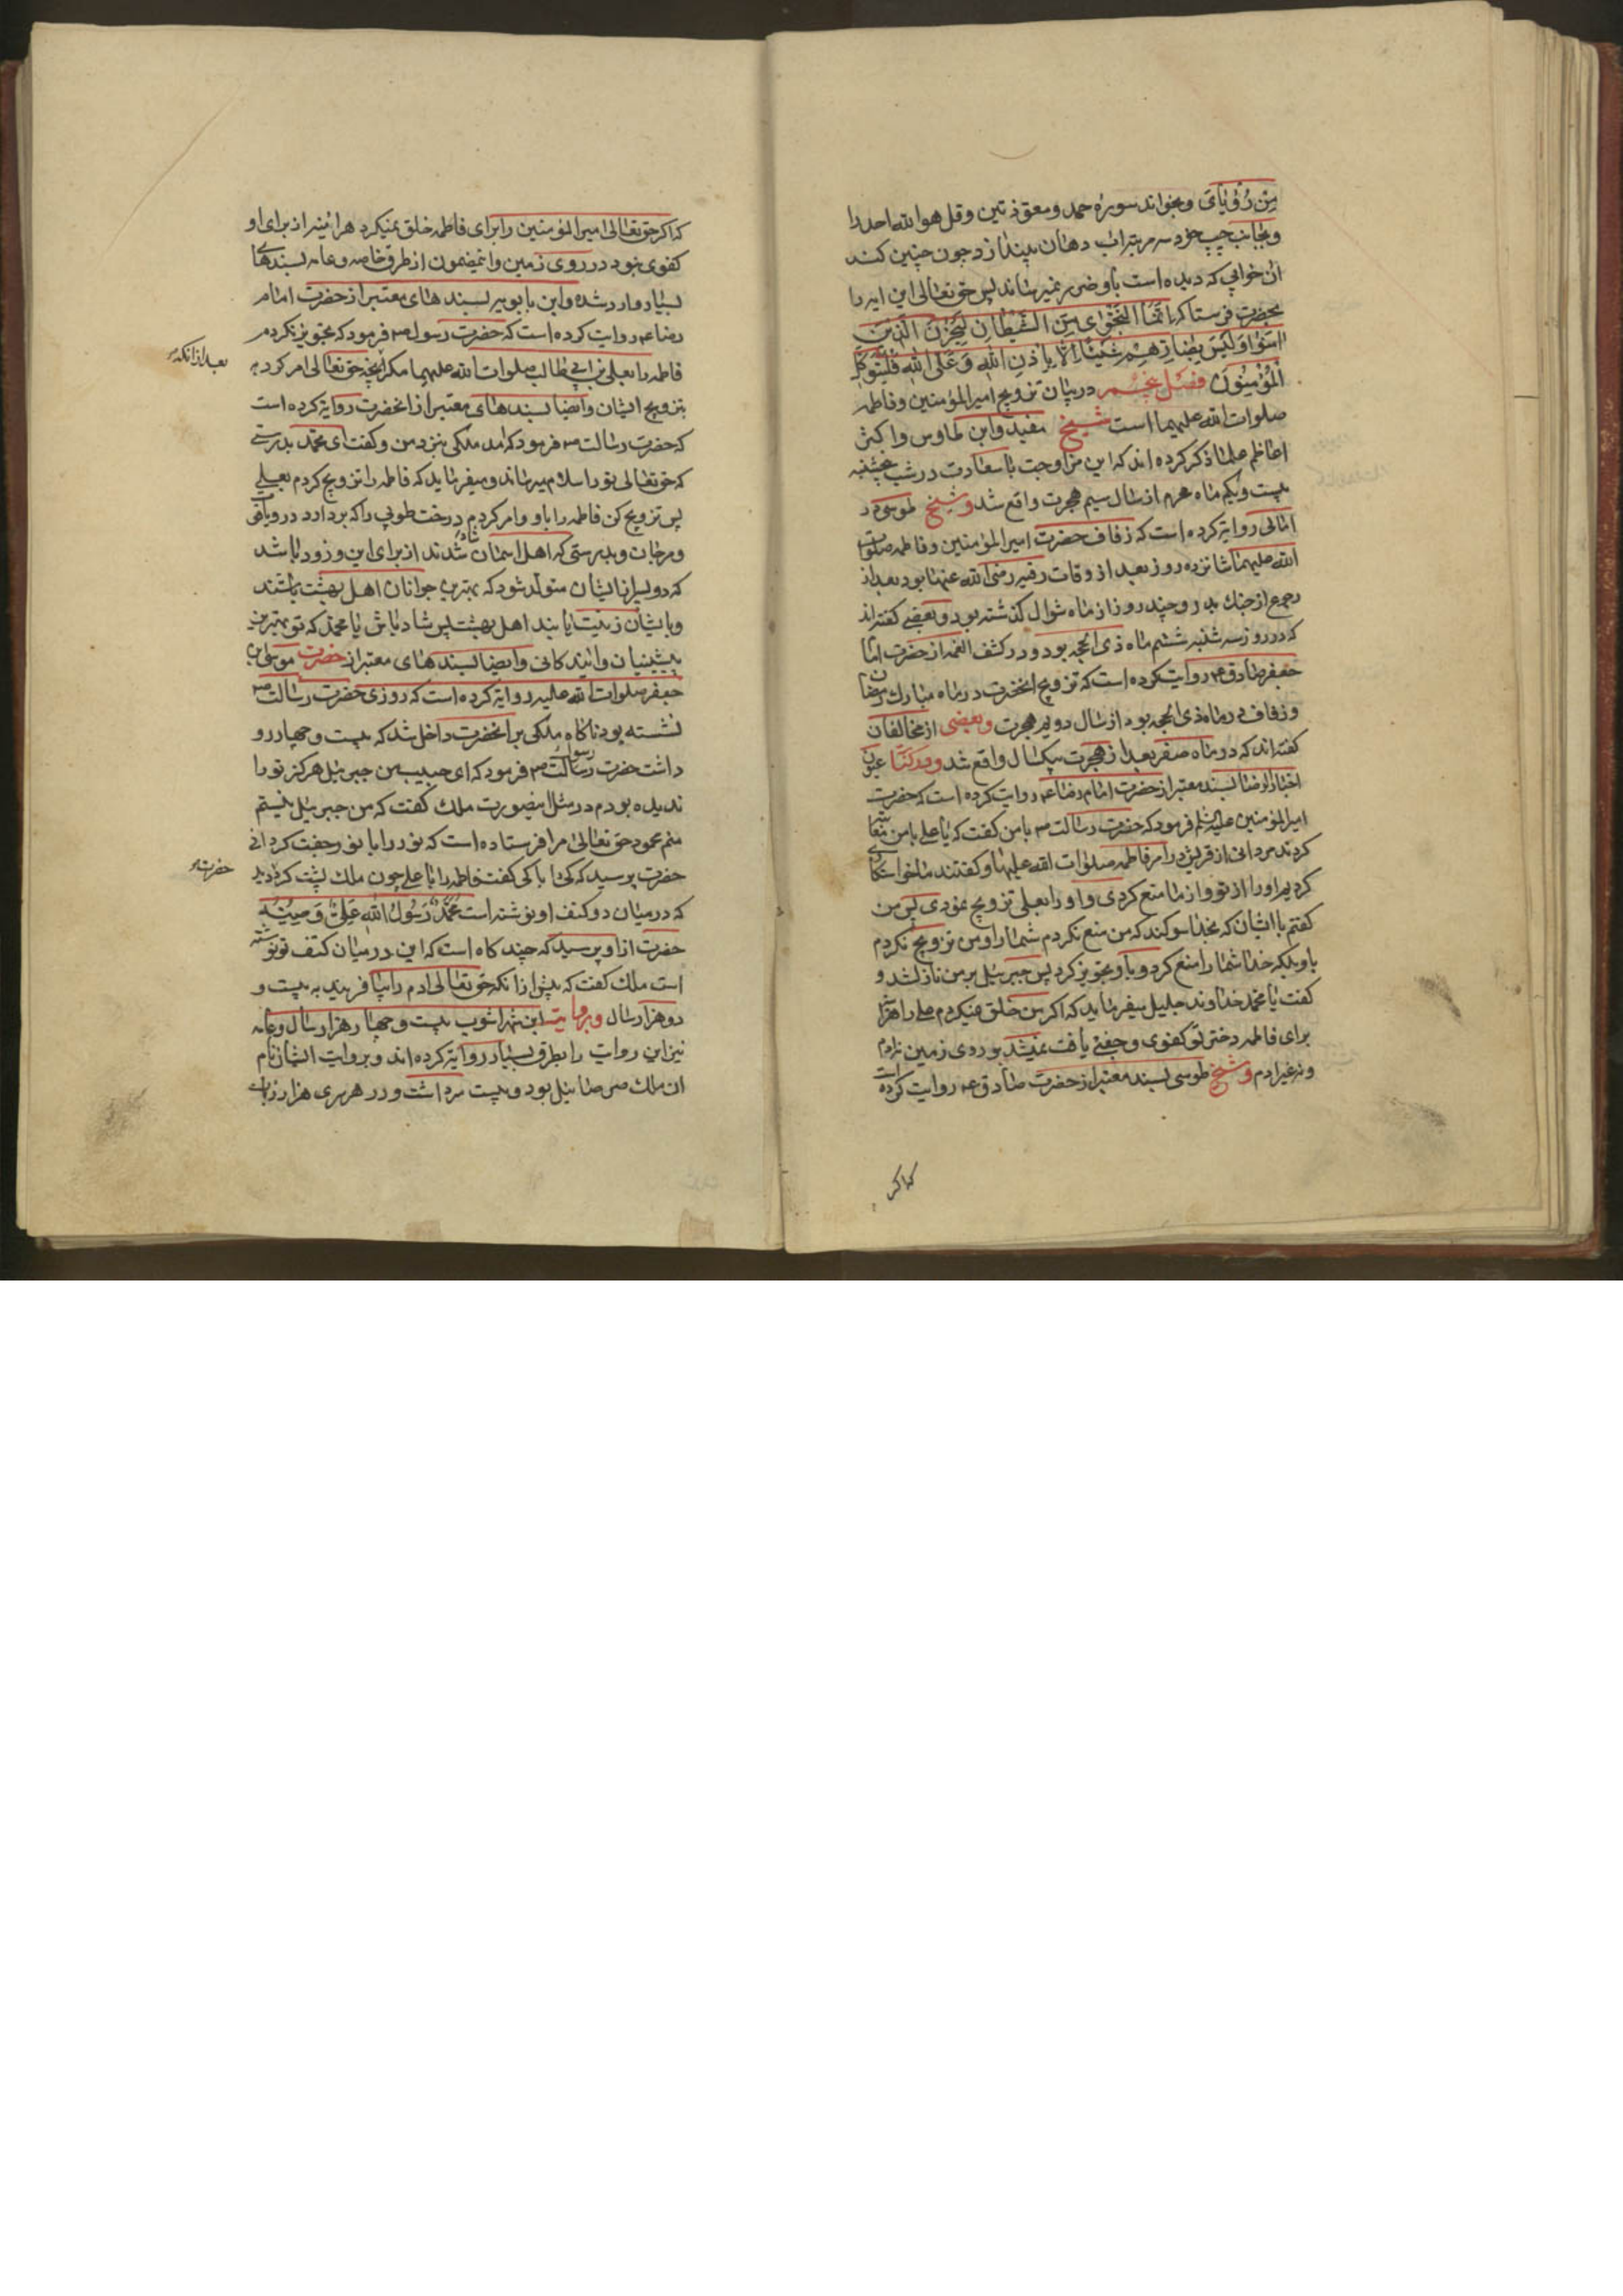 مِن رُؤیایَ و بخواند سوره حمد و معوّذتین و قل هو الله احد را
و بجانب چپ خود سه مرتبه اب دهان بیندازد چون چنین کند
ان خوابی که دیده است باو ضرر نمیرساند پس حق تعالی این ایه را
بحضرت فرستاد که اِنَّمَا النَّجْوٰی مِنَ الشَّیْطَانِ لِیَحْزُنَ الَّذِینَ
اٰمَنُوا وَلَیْسَ بِضَارِّهِمْ شَیْئًا اِلَّا بِاِذْنِ اللهِ وَعَلَی اللهِ فَلْیَتَوَکَّلِ
الْمُؤْمِنُونَ فصل پنجم در بیان تزویج امیرالمؤمنین و فاطمه
صلوات الله علیهما است شیخ مفید و ابن طاوس و اکثر
اعاظم علما ذکر کرده اند که این مزاوجت با سعادت در شب پنجشنبه
بیست و یکم ماه محرم از سال سیم هجرت واقع شد و شیخ طوسی در
امالی روایة کرده است که زفاف حضرت امیرالمؤمنین و فاطمه صلوات
الله علیهما شانزده روز بعد از وفات رقیه رضی الله عنها بود بعد از
رجوع از جنك بدر و چند روز از ماه شوال کذشته بود و بعضی کفته اند
که در روز سه شنبه ششم ماه ذی الحجه بود و در کشف الغمه از حضرت امام
جعفر صادق ع روایت کرده است که تزویج انحضرت در ماه مبارك رمضان
و زفاف در ماه ذی الحجه بود از سال دویم هجرت و بعضی از مخالفان
کفته اند که در ماه صفر بعد از هجرت بیکسال واقع شد و در کتاب عیون
اخبار الرضا بسند معتبر از حضرت امام رضا ع روایت کرده است که حضرت
امیرالمؤمنین علیه السلم فرمود که حضرت رسالت ص با من کفت که یا علی با من عتاب
کردند مردانی از قریش در امر فاطمه صلوات الله علیها و کفتند ما خواستکاری
کردیم او را از تو و از ما منع کردی و او را بعلی تزویج نمودی پس من
کفتم با ایشان که بخدا سوکند که من منع نکردم شما را و من تزویج نکردم
باو بلکه خدا شما را منع کرد و باو تجویز کرد پس جبرئیل بر من نازلشد و
کفت یا محمد خداوند جلیل میفرماید که اکر من خلق نمیکردم علی را هراینه
برای فاطمه دختر تو کفوی و جفتی یافت نمیشد بر روی زمین نه ادم
و نه غیر ادم و شیخ طوسی بسند معتبر از حضرت صادق ع روایت کرده است
که اکر
که اکر حق تعالی امیرالمؤمنین را برای فاطمه خلق نمیکرد هراینه از برای او
کفوی نبود در روی زمین و اینمضمون از طرق خاصه و عامه بسندهای
بسیار وارد شده و ابن بابویه بسند های معتبر از حضرت امام
رضا ع روایت کرده است که حضرت رسول ص فرمود که تجویز نکردم
فاطمه را بعلی بن ابی طالب صلوات الله علیهما مکر انچه حق تعالی امر کرد مرا
بعد از انکه
بتزویج ایشان و ایضا بسندهای معتبر از انحضرت روایة کرده است
که حضرت رسالت ص فرمود که امد ملکی بنزد من و کفت ای محمد بدرستی
که حق تعالی تو را سلام میرساند و میفرماید که فاطمه را تزویج کردم بعلی
پس تزویج کن فاطمه را باو و امر کردم درخت طوبی را که بردارد در و یاقوت
و مرجان و بدرستی که اهل اسمان شاد شدند از برای این و زود باشد
که دو پسر از ایشان متولد شود که بهترین جوانان اهل بهشت باشند
و بایشان زینت یابند اهل بهشت پس شاد باش یا محمد که تو بهترین
پیشینیان و ایندکانی و ایضا بسندهای معتبر از حضرت موسی ابن
جعفر صلوات الله علیه روایة کرده است که روزی حضرت رسالت ص
نشسته بود ناکاه ملکی بر انحضرت داخل شد که بیست و چهار رو
داشت حضرت رسول ص فرمود که ای حبیب من جبرئیل هرکز تو را
ندیده بودم در مثل اینصورت ملك کفت که من جبرئیل نیستم
منم محمود حق تعالی مرا فرستاده است که نور را با نور جفت کردانی
حضرت پرسید که کی را با کی کفت فاطمه را با علی چون ملك پشت کرد دید
حضرت
که در میان دو کتف او نوشته است مُحَمَّدٌ رَسُولُ اللهِ عَلِیٌّ وَصِیُّهُ
حضرت از او پرسید که چند کاه است که این در میان کتف تو نوشته
است ملك کفت که پیش از انکه حق تعالی ادم را بیافریند به بیست و
دو هزار سال و بروایت ابن شهراشوب بیست و چهار هزار سال و عامه
نیز این روایت را بطرق بسیار روایة کرده اند و بروایت ایشان نام
ان ملك صرصائیل بود و بیست سر داشت و در هر سری هزار زبان